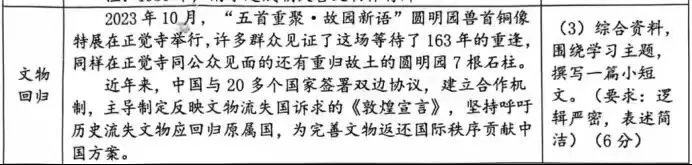 2023年10月，“五首重聚·故园新语”圆明园兽首铜像
特展在正觉寺举行,许多群众见证了这场等待了163年的重逢，
同样在正觉寺同公众见面的还有重归故土的圆明园7根石柱。
文物
回归
近年来，中国与20多个国家签署双边协议，建立合作机
制，主导制定反映文物流失国诉求的《敦煌宣言》，坚持呼吁
历史流失文物应回归原属国，为完善文物返还国际秩序贡献中
国方案。
（3）综合资料，
围绕学习主题，
撰写一篇小短
文。（要求：逻
辑严密，表述简
洁）（6分）